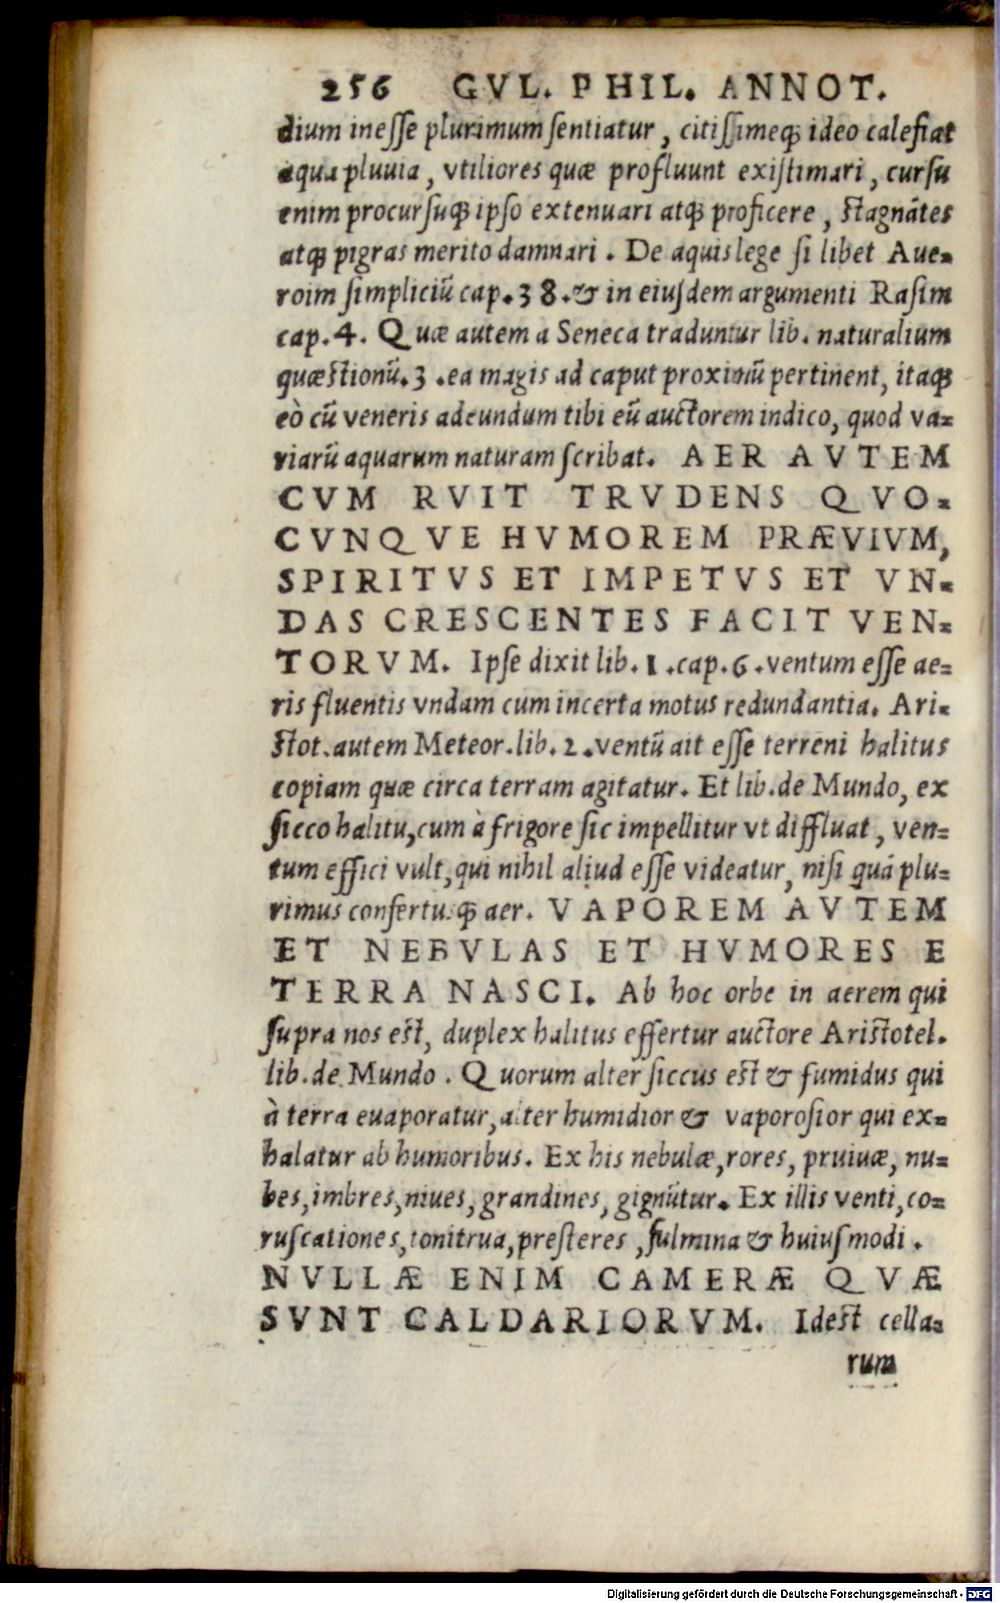 256 GVL. PHIL. ANNOT.
dium inesse plurimum sentiatur, citissimeq́; ideo calefiat
aqua pluuia, vtiliores quæ profluunt existimari, cursu
enim procursuq́; ipso extenuari atq́; proficere, stagnātes
atq́; pigras merito damnari. De aquis lege si libet Aue-
roim simpliciū cap. 38. & in eiusdem argumenti Rasim
cap. 4. Quæ autem a Seneca traduntur lib. naturalium
quæstionū. 3. ea magis ad caput proximū pertinent, itaq́;
eò cū veneris adeundum tibi eū auctorem indico, quod va-
riarū aquarum naturam scribat. AER AVTEM
CVM RVIT TRVDENS QVO-
CVNQVE HVMOREM PRÆVIVM,
SPIRITVS ET IMPETVS ET VN-
DAS CRESCENTES FACIT VEN-
TORVM. Ipse dixit lib. 1. cap. 6. ventum esse ae-
ris fluentis vndam cum incerta motus redundantia. Ari-
stot. autem Meteor. lib. 2. ventū ait esse terreni halitus
copiam quæ circa terram agitatur. Et lib. de Mundo, ex
sicco halitu, cum à frigore sic impellitur vt diffluat, ven-
tum effici vult, qui nihil aliud esse videatur, nisi quā plu-
rimus confertusq́; aer. VAPOREM AVTEM
ET NEBVLAS ET HVMORES E
TERRA NASCI. Ab hoc orbe in aerem qui
supra nos est, duplex halitus effertur auctore Aristotel.
lib. de Mundo. Quorum alter siccus est & fumidus qui
à terra euaporatur, alter humidior & vaporosior qui ex-
halatur ab humoribus. Ex his nebulæ, rores, pruiuæ, nu-
bes, imbres, niues, grandines, gignūtur. Ex illis venti, co-
ruscationes, tonitrua, presteres, fulmina & huiusmodi.
NVLLÆ ENIM CAMERÆ QVÆ
SVNT CALDARIORVM. Idest cella-
rum
Digitalisierung gefördert durch die Deutsche Forschungsgemeinschaft - DFG